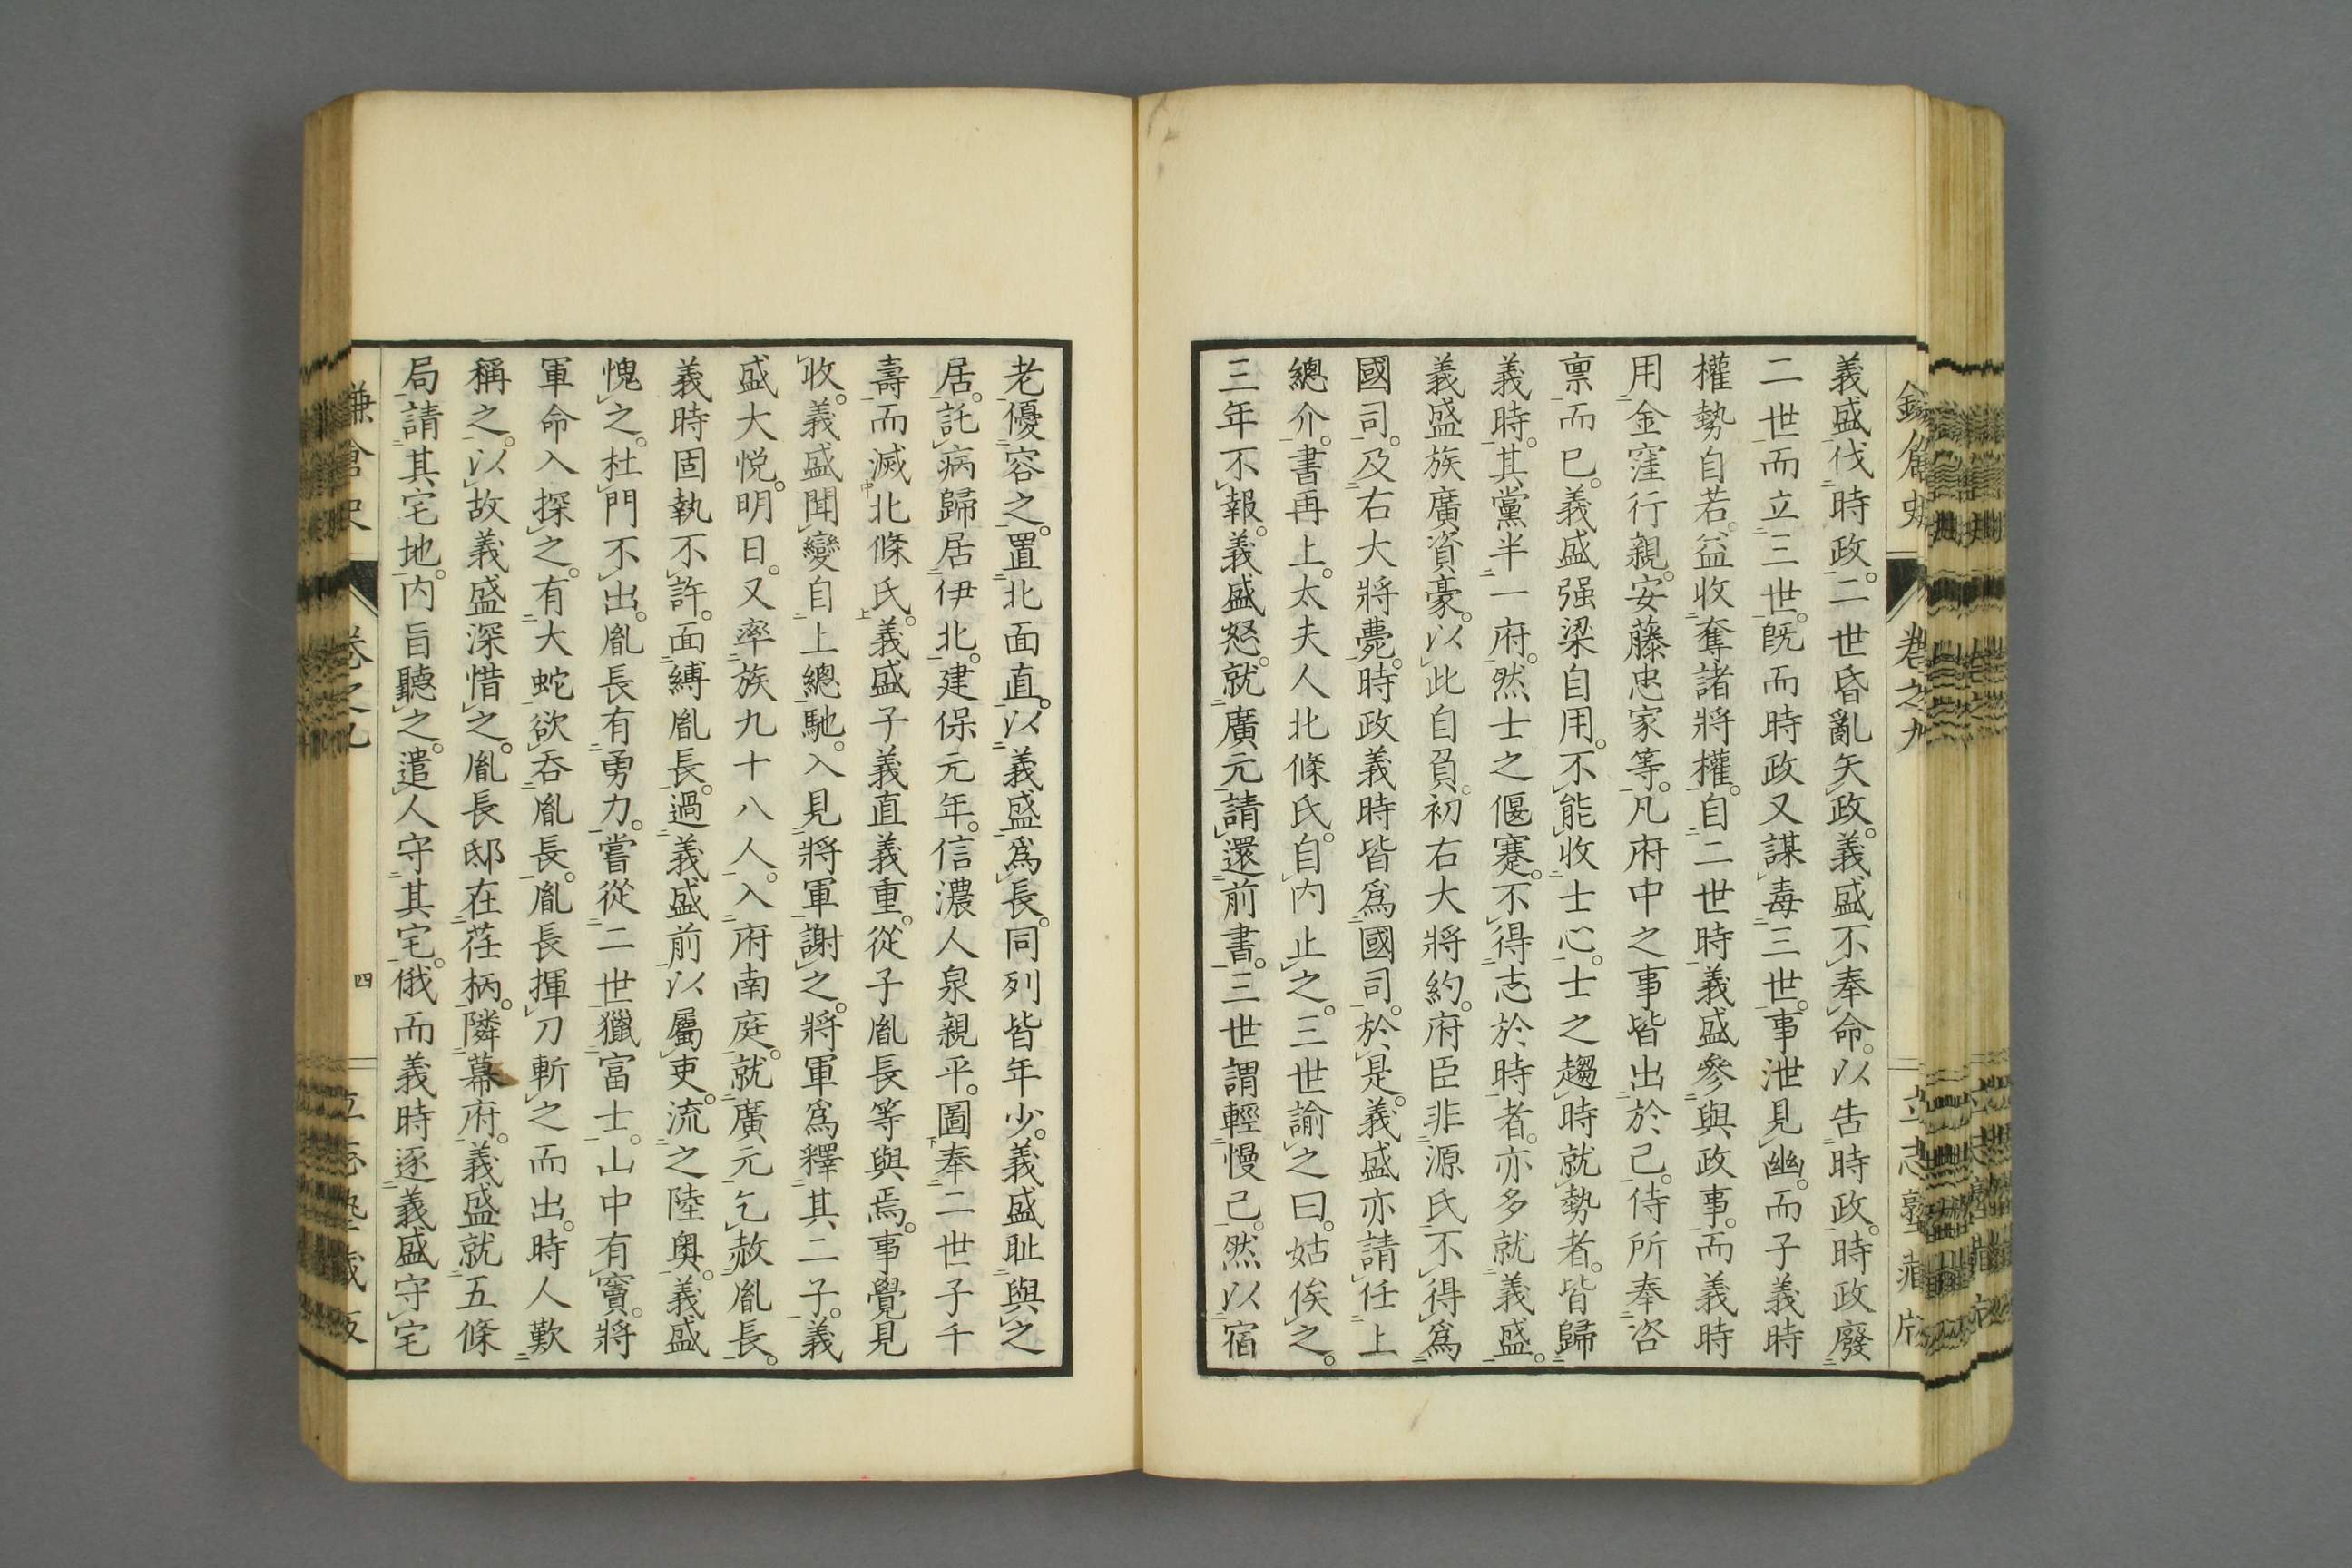 義盛伐時政。二世昏亂矢政。義盛不奉命。以告時政。時政廢
二世而立三世。既而時政又謀毒三世。事泄見幽。而子義時
權勢自若。益收奪諸將權。自二世時義盛參與政事。而義時
用金窪行親。安藤忠家等。凡府中之事皆出於己。侍所奉咨
禀而已。義盛强梁自用。不能收士心。士之趨時就勢者。皆歸
義時。其黨半一府。然士之偃蹇。不得志於時者。亦多就義盛。
義盛族廣資豪。以此自負。初右大將約。府臣非源氏不得爲
國司。及右大將薨。時政義時皆爲國司。於是。義盛亦請任上
總介。書再上。太夫人北條氏。自内止之。三世諭之曰。姑俟之。
三年不報。義盛怒。就廣元請還前書。三世謂輕慢己。然以宿
老優容之。置北面直。以義盛爲長。同列皆年少。義盛耻與之
居。託病歸居伊北。建保元年。信濃人泉親平。圖奉二世子千
壽而滅北條氏。義盛子義直義重。從子胤長等與焉。事覺見
收。義盛聞變自上總馳。入見將軍謝之。將軍爲釋其二子。義
盛大悦。明日。又率族九十八人。入府南庭。就廣元乞赦胤長。
義時固執不許。面縛胤長。過義盛前以屬吏。流之陸奥。義盛
愧之。杜門不出。胤長有勇力。嘗從二世獵富士。山中有竇。將
軍命入探之。有大蛇欲呑胤長。胤長揮刀斬之而出。時人歎
稱之。以故義盛深惜之。胤長邸在荏柄。隣幕府。義盛就五條
局請其宅地。内旨聽之。遣人守其宅。俄而義時逐義盛守宅
卷之九
四